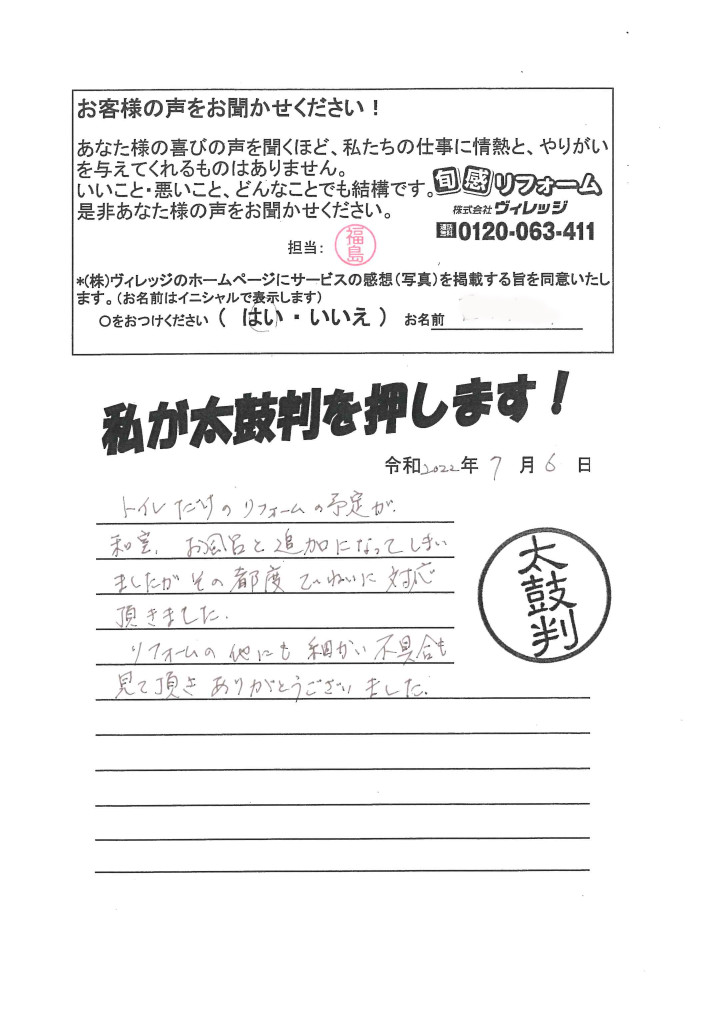 お客様の声をお聞かせください！
あなた様の喜びの声を聞くほど、私たちの仕事に情熱と、やりがい
を与えてくれるものはありません。
いいこと・悪いこと、どんなことでも結構です。
是非あなた様の声をお聞かせください。
旬感リフォーム
株式会社ヴィレッジ
通話無料 0120-063-411
担当：福島
*(株)ヴィレッジのホームページにサービスの感想（写真）を掲載する旨を同意いたし
ます。（お名前はイニシャルで表示します）
○をおつけください（ はい ・ いいえ ） お名前
私が太鼓判を押します！
令和2022年 7 月 6 日
トイレだけのリフォームの予定が、
和室、お風呂と追加になってしまい
ましたがその都度ていねいに対応
頂きました。
リフォームの他にも細かい不具合も
見て頂きありがとうございました。
太鼓判